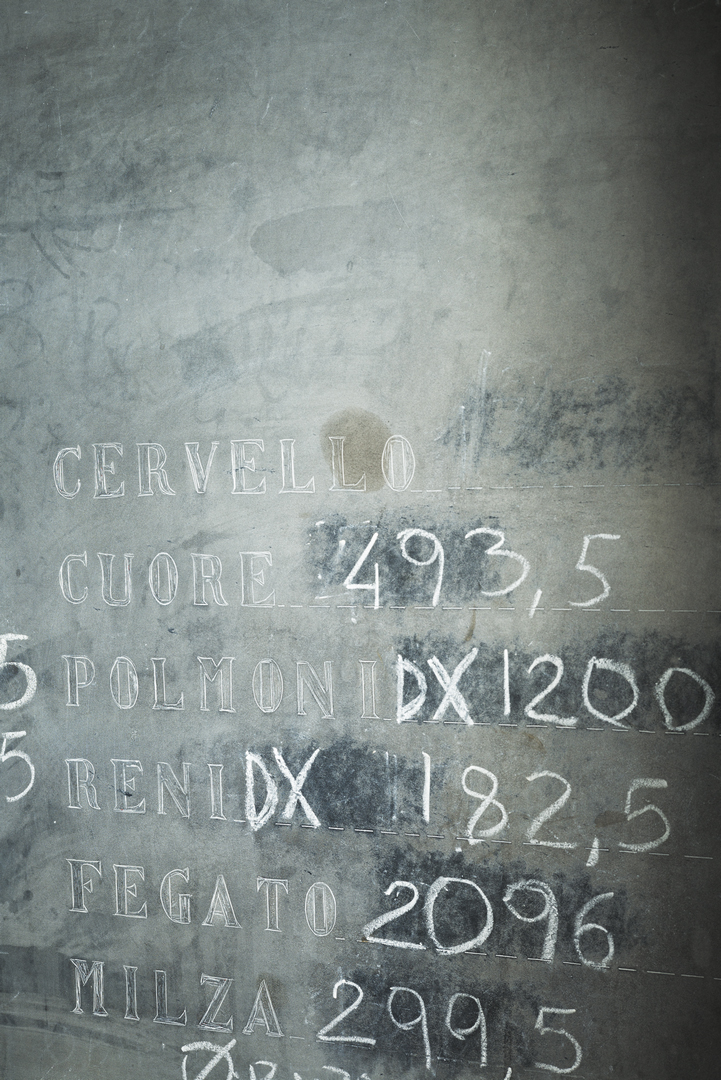 CERVELLO
CUORE 493,5
5 POLMONI DX 1200
5 RENI DX 182,5
FEGATO 2096
MILZA 299,5